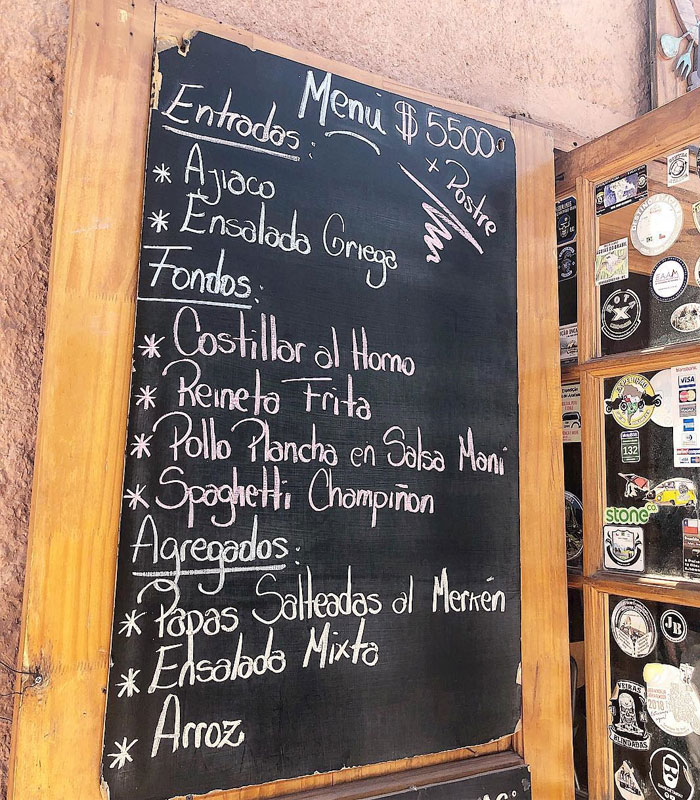 Menú $5500
x Postre
Entradas:
* Ajiaco
* Ensalada Griega
Fondos:
* Costillar al Horno
* Reineta Frita
* Pollo Plancha en Salsa Mani
* Spaghetti Champiñon
Agregados:
* Papas Salteadas al Merkén
* Ensalada Mixta
* Arroz
VISA
132
stone co
JB
VEIRAS
BLINDADAS
2018